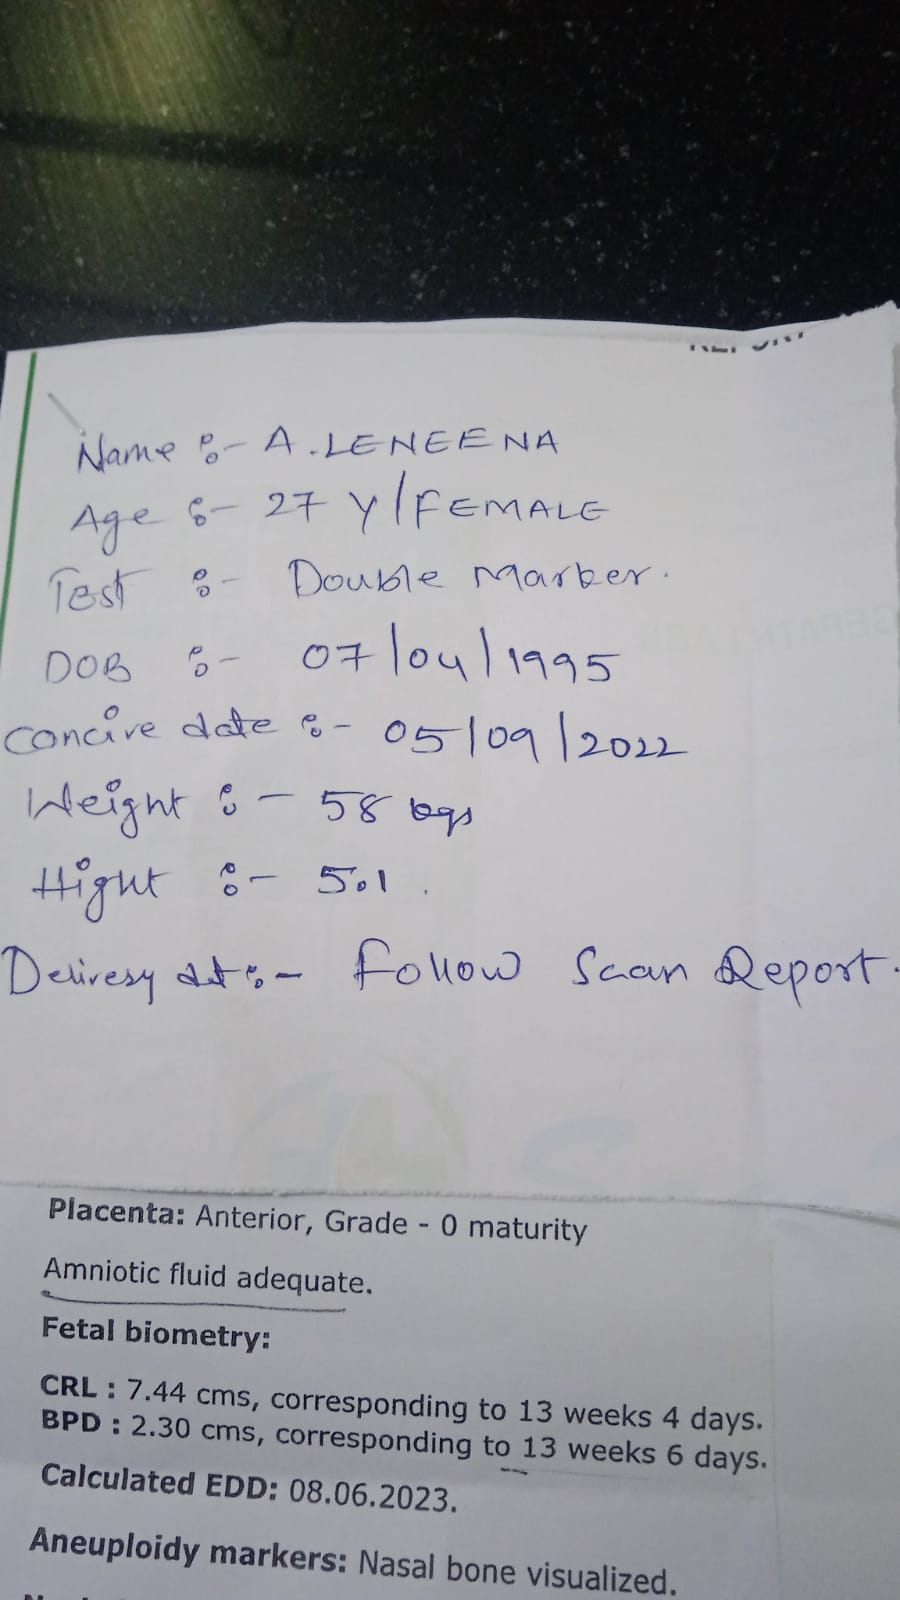 REPORT
Name :- A.LENEENA
Age :- 27 Y/FEMALE
Test :- Double Marker.
DOB :- 07/04/1995
Concive date :- 05/09/2022
Weight :- 58 kgs
Hight :- 5.1.
Delivery dt :- Follow Scan Report.
Placenta: Anterior, Grade - 0 maturity
Amniotic fluid adequate.
Fetal biometry:
CRL : 7.44 cms, corresponding to 13 weeks 4 days.
BPD : 2.30 cms, corresponding to 13 weeks 6 days.
Calculated EDD: 08.06.2023.
Aneuploidy markers: Nasal bone visualized.